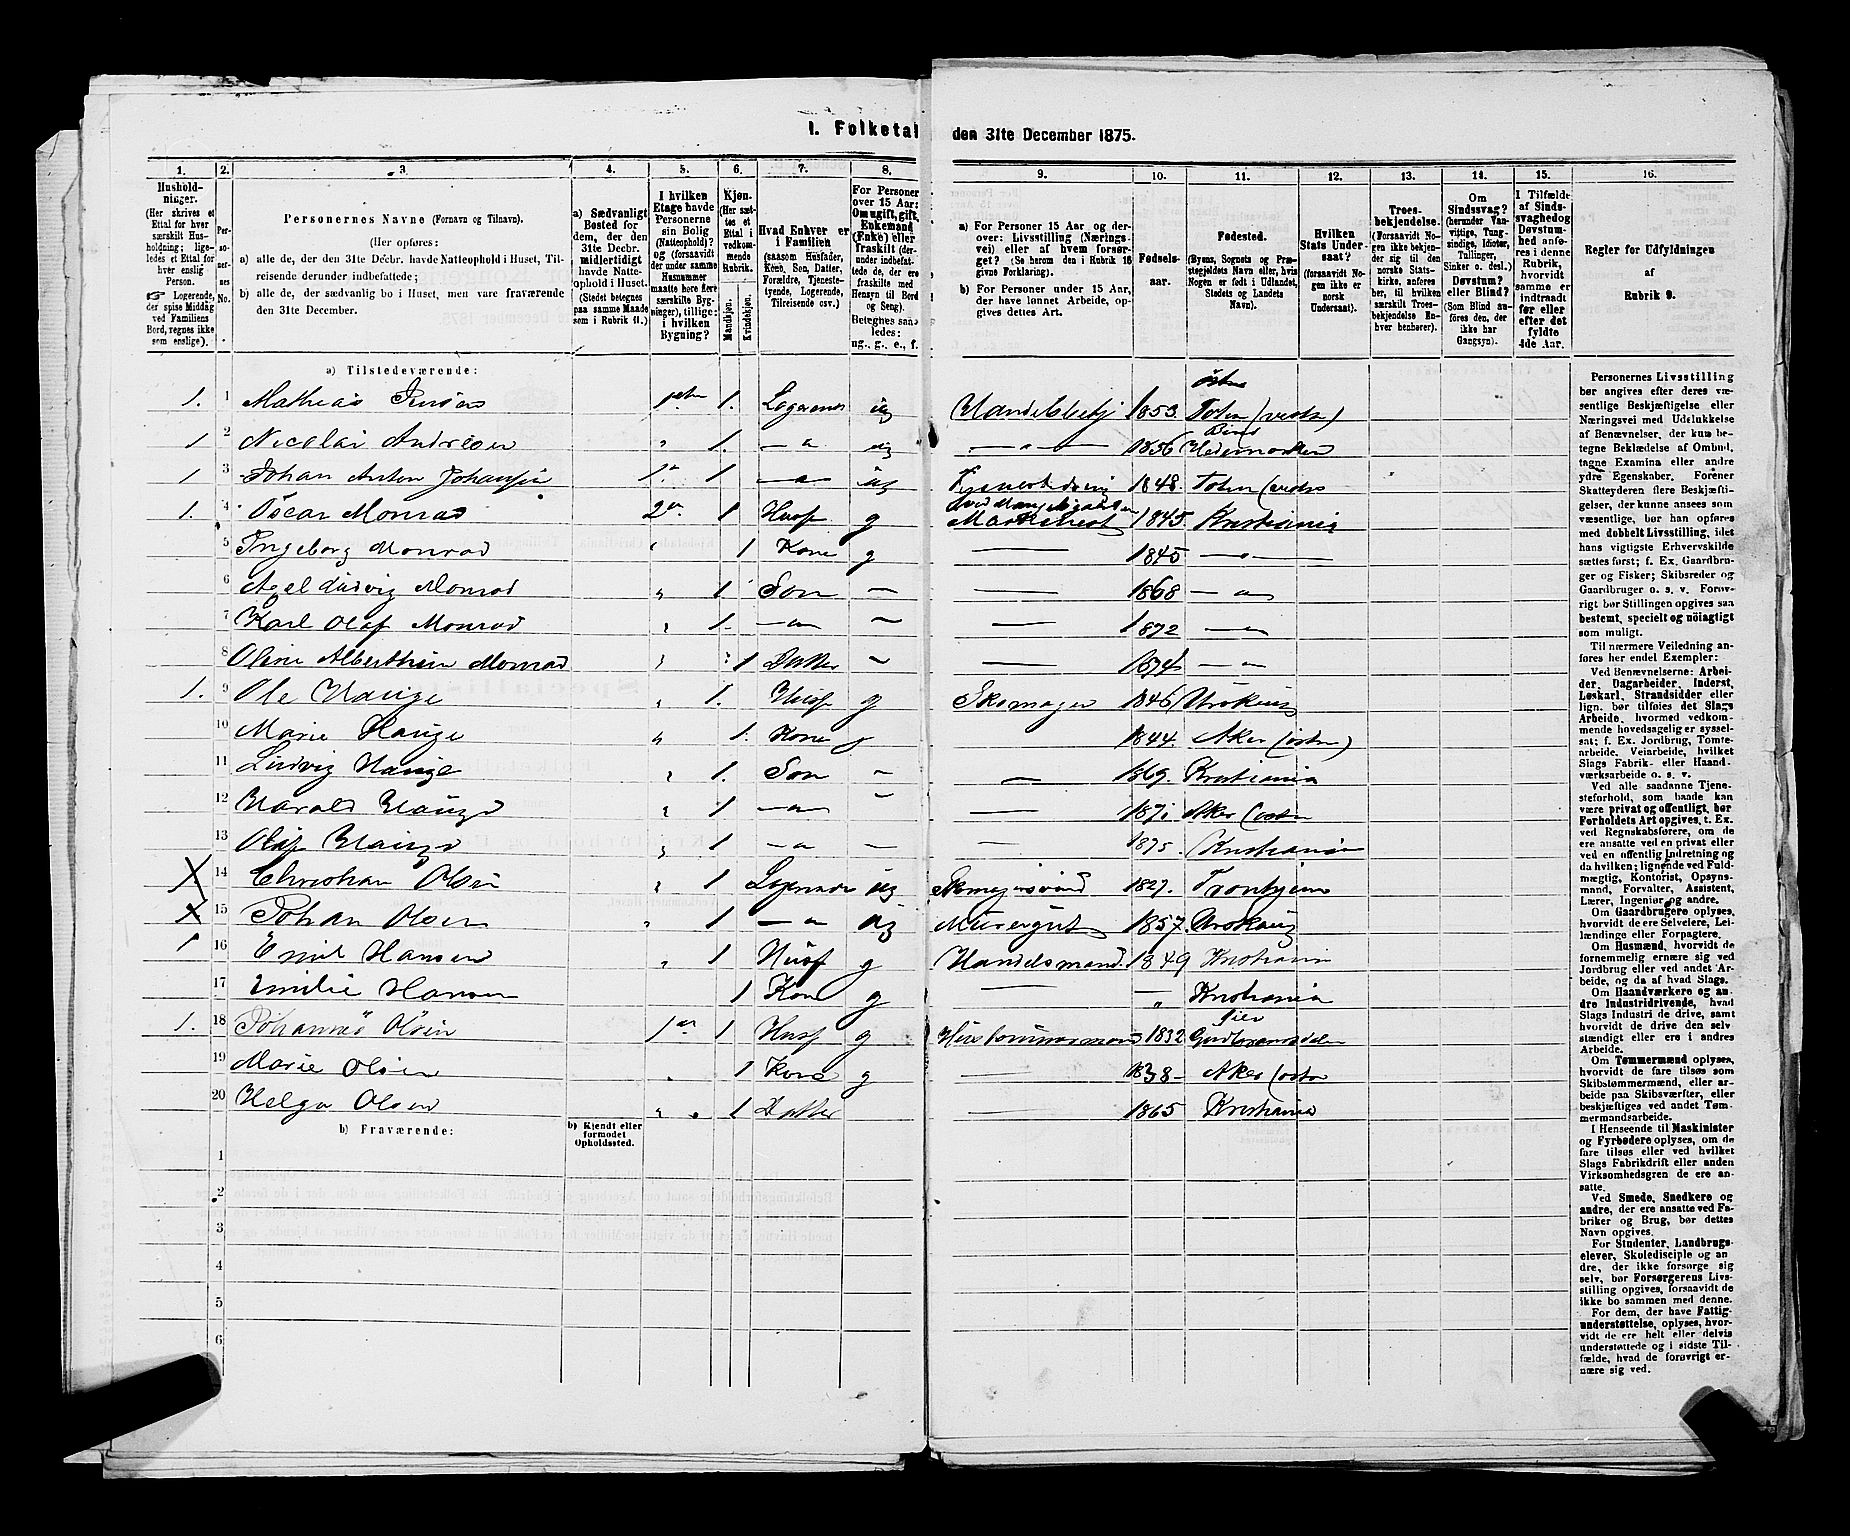 I. Folketal den 31te December 1875.
1. 2. 3. 4. 5. 6. 7. 8. 9. 10. 11. 12. 13. 14. 15. 16.
Hushold-
ninger.
(Her skrives et
Ettal for hver
særskilt Hus-
holdning; lige-
ledes et Ettal for
hver enslig
Person.
☞ Logerende,
der spise Middag
ved Familiens
Bord, regnes ikke
som enslige).
Per-
so-
ner-
nes
No.
Personernes Navne (Fornavn og Tilnavn).
(Her opføres:
a) alle de, der den 31te Decbr. havde Natteophold i Huset, Til-
reisende derunder indbefattede;
b) alle de, der sædvanlig bo i Huset, men vare fraværende
den 31te December.
a) Sædvanligt
Bosted for
dem, der den
31te Decbr.
midlertidigt
havde Natte-
ophold i Huset.
(Stedet betegnes
paa samme Maade
som i Rubrik 11.)
I hvilken
Etage havde
Personerne
sin Bolig
(Natteophold)?
og (forsaavidt
der under samme
Husnummer
maatte høre flere
særskilte Byg-
ninger), tillige:
i hvilken
Bygning?
Kjøn.
(Her sæt-
tes et
Ettal i
vedkom-
mende
Rubrik.
Mandkjøn.
Kvindekjøn.
Hvad Enhver er
i Familien
(saasom Husfader,
Kone, Søn, Datter,
Forældre, Tjeneste-
tyende, Logerende,
Tilreisende osv.)
For Personer
over 15 Aar:
Om ugift, gift,
Enkemand
(Enke) eller
fraskilt (der-
under indbefat-
tede de, der ere
fraskilte med
Hensyn til Bord
og Seng).
Betegnes saa-
ledes:
ug., g., e., f.
a) For Personer 15 Aar og der-
over: Livsstilling (Nærings-
vei) eller af hvem forsør-
get? (Se herom den i Rubrik 16
givne Forklaring).
b) For Personer under 15 Aar,
der have lønnet Arbeide, op-
gives dettes Art.
Fødsels-
aar.
Fødested.
(Byens, Sognets og Præ-
stegjeldets Navn eller, hvis
Nogen er født i Udlandet,
Stedets og Landets
Navn).
Hvilken
Stats Under-
saat?
(forsaavidt No-
gen ikke er
norsk
Undersaat).
Troes-
bekjendelse.
(Forsaavidt No-
gen ikke bekjen-
der sig til den
norske Stats-
kirke, anføres
her, til hvilken
særskilt Troes-
bekjendelse En-
hver benhører).
Om
Sindssvag?
(herunder Van-
vittige, Tung-
sindige, Idioter,
Tullinger,
Sinker o. desl.)
Døvstum?
eller Blind?
(Som Blind an-
føres den, der
ikke har
Gangsyn).
I Tilfælde
af Sinds-
svaghed og
Døvstum-
hed anfø-
res i denne
Rubrik,
hvorvidt
samme er
indtraadt
før eller
efter det
fyldte
4de Aar.
Regler for Udfyldningen
af
Rubrik 9.
a) Tilstedeværende:
1. 1 Mathias Jensen 1ste 1. Logerende ug Handelsbetj 1853. Østre Toten (vestre)
1 2 Nicolai Andresen " 1. — " ug — " — 1856 Hedemarken
1 3 Johan Anton Johansen 1" 1 — " ug 1848. Toten (vestre
1. 4 Oscar Monrad 2" 1 Husf g Maskinist 1845. Kristiania
5 Ingeborg Monrad " 1 Kone g — 1845 — " —
6 Axel Ludvig Monrad " 1. Søn — — 1868 — "
7 Karl Olaf Monrad " 1. — " — — 1872 — "
8 Oline Alberthine Monrad " 1 Datter — — 1874 — "
1. 9 Ole Hauge " 1. Husf g Skomager 1846 Urskoug
10 Marie Hauge " 1. Kone g 1844. Aker (østre)
11 Ludvig Hauge " 1. Søn — — 1869. Kristiania
12 Harald Hauge " 1 — " — — 1871 Aker (østre
13 Olaf Hauge " 1 — " — — 1875. Kristiania
X 14 Christian Olsen " 1 Logerende ug Skomagersvend 1827. Tronhjem
X 15 Johan Olsen " 1 — " ug Murergut 1857. Urskoug
1 16 Emil Hansen " 1 Husf g Handelsmand. 1849 Kristiania
17 Emilie Hansen 1 Kone g — — " Kristiania
1. 18 Johannes Olsen 1" 1 Husf g Hustømmermand 1832 Øier Gudbransdalen
19 Marie Olsen " 1 Kone g — 1838 - Aker (østre
20 Helga Olsen " 1 Datter — 1865 Kristiania
b) Fraværende:
b) Kjendt eller
formodet
Opholdssted.
1
2
3
4
5
6
Personernes Livsstilling
bør angives efter deres væ-
sentlige Beskjæftigelse eller
Næringsvei med Udelukkelse
af Benævnelser, der kun be-
tegne Beklædelse af Ombud,
tagne Examina eller andre
ydre Egenskaber. Forener
Skatteyderen flere Beskjæfti-
gelser, der kunne ansees som
væsentlige, bør han opføres
med dobbelt Livsstilling, idet
hans vigtigste Erhvervskilde
sættes først; f. Ex. Gaardbru-
ger og Fisker; Skibsreder og
Gaardbruger o. s. v. Forøv-
rigt bør Stillingen opgives saa
bestemt, specielt og nöiagtigt
som muligt.
Til nærmere Veiledning an-
føres her endel Exempler:
Ved Benævnelserne: Arbei-
der, Dagarbeider, Inderst,
Løskarl, Strandsidder eller
lign. bør tilføies det Slags
Arbeide, hvormed vedkom-
mende hovedsagelig er syssel-
sat; f. Ex. Jordbrug, Tomte-
arbeide, Veiarbeide, hvilket
Slags Fabrik- eller Haand-
værksarbeide o. s. v.
Ved alle saadanne Tjene-
steforhold, som baade kan
være privat og offentligt, bør
Forholdets Art opgives, t. Ex.
ved Regnskabsførere, om de
ere ansatte ved en privat eller
ved en offentlig Indretning og
da hvilken; lignende ved Fuld-
mægtig, Kontorist, Opsyns-
mand, Forvalter, Assistent,
Lærer, Ingeniør og andre.
Om Gaardbrugere oplyses,
hvorvidt de ere Selveiere, Lei-
lændinge eller Forpagtere.
Om Husmænd, hvorvidt de
fornemmelig ernære sig ved
Jordbrug eller ved andet Ar-
beide, og da af hvad Slags.
Om Haandværkere og an-
dre Industridrivende, hvad
Slags Industri de drive, samt
hvorvidt de drive den selv-
stændigt eller ere i andres
Arbeide.
Om Tømmermænd oplyses,
hvorvidt de fare tilsøs som
Skibstømmermænd, eller ar-
beide paa Skibsværfter, eller
beskjæftiges ved andet Tøm-
mermandsarbeide.
I Henseende til Maskinister
og Fyrbødere oplyses, om de
fare tilsøs eller ved hvilket
Slags Fabrikdrift eller anden
Virksomhedsgren de ere an-
satte.
Ved Smede, Snedkere og
andre, der ere ansatte ved Fa-
briker og Brug, bør dettes
Navn opgives.
For Studenter, Landbrugs-
elever, Skoledisciple og an-
dre, der ikke forsørge sig
selv, bør Forsørgerens Livs-
stilling opgives, forsaavidt de
ikke bo sammen med denne.
For dem, der have Fattig-
understøttelse, oplyses, hvor-
vidt de ere helt eller delvis
understøttede og i sidste Til-
fælde, hvad de forøvrigt er-
nære sig ved.